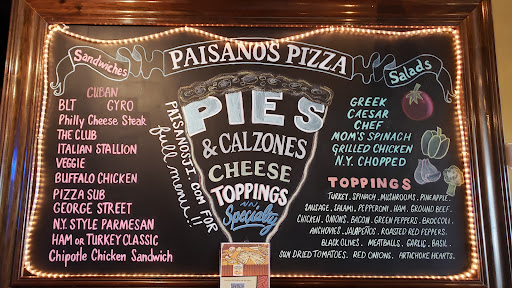 PAISANO'S PIZZA
Sandwiches
CUBAN
BLT GYRO
Philly Cheese Steak
THE CLUB
ITALIAN STALLION
VEGGIE
BUFFALO CHICKEN
PIZZA SUB
GEORGE STREET
N.Y. STYLE PARMESAN
HAM OR TURKEY CLASSIC
Chipotle Chicken Sandwich
PIES
& CALZONES
CHEESE
TOPPINGS
Specialty
PAISANOSJI.COM FOR
full menu!!
Salads
GREEK
CAESAR
CHEF
MOM'S SPINACH
GRILLED CHICKEN
N.Y. CHOPPED
TOPPINGS
TURKEY. SPINACH. MUSHROOMS. PINEAPPLE.
SAUSAGE. SALAMI. PEPPERONI. HAM. GROUND BEEF.
CHICKEN. ONIONS. BACON. GREEN PEPPERS. BROCCOLI.
ANCHOVIES. JALAPEÑOS. ROASTED RED PEPPERS.
BLACK OLIVES. MEATBALLS. GARLIC. BASIL.
SUN DRIED TOMATOES. RED ONIONS. ARTICHOKE HEARTS.